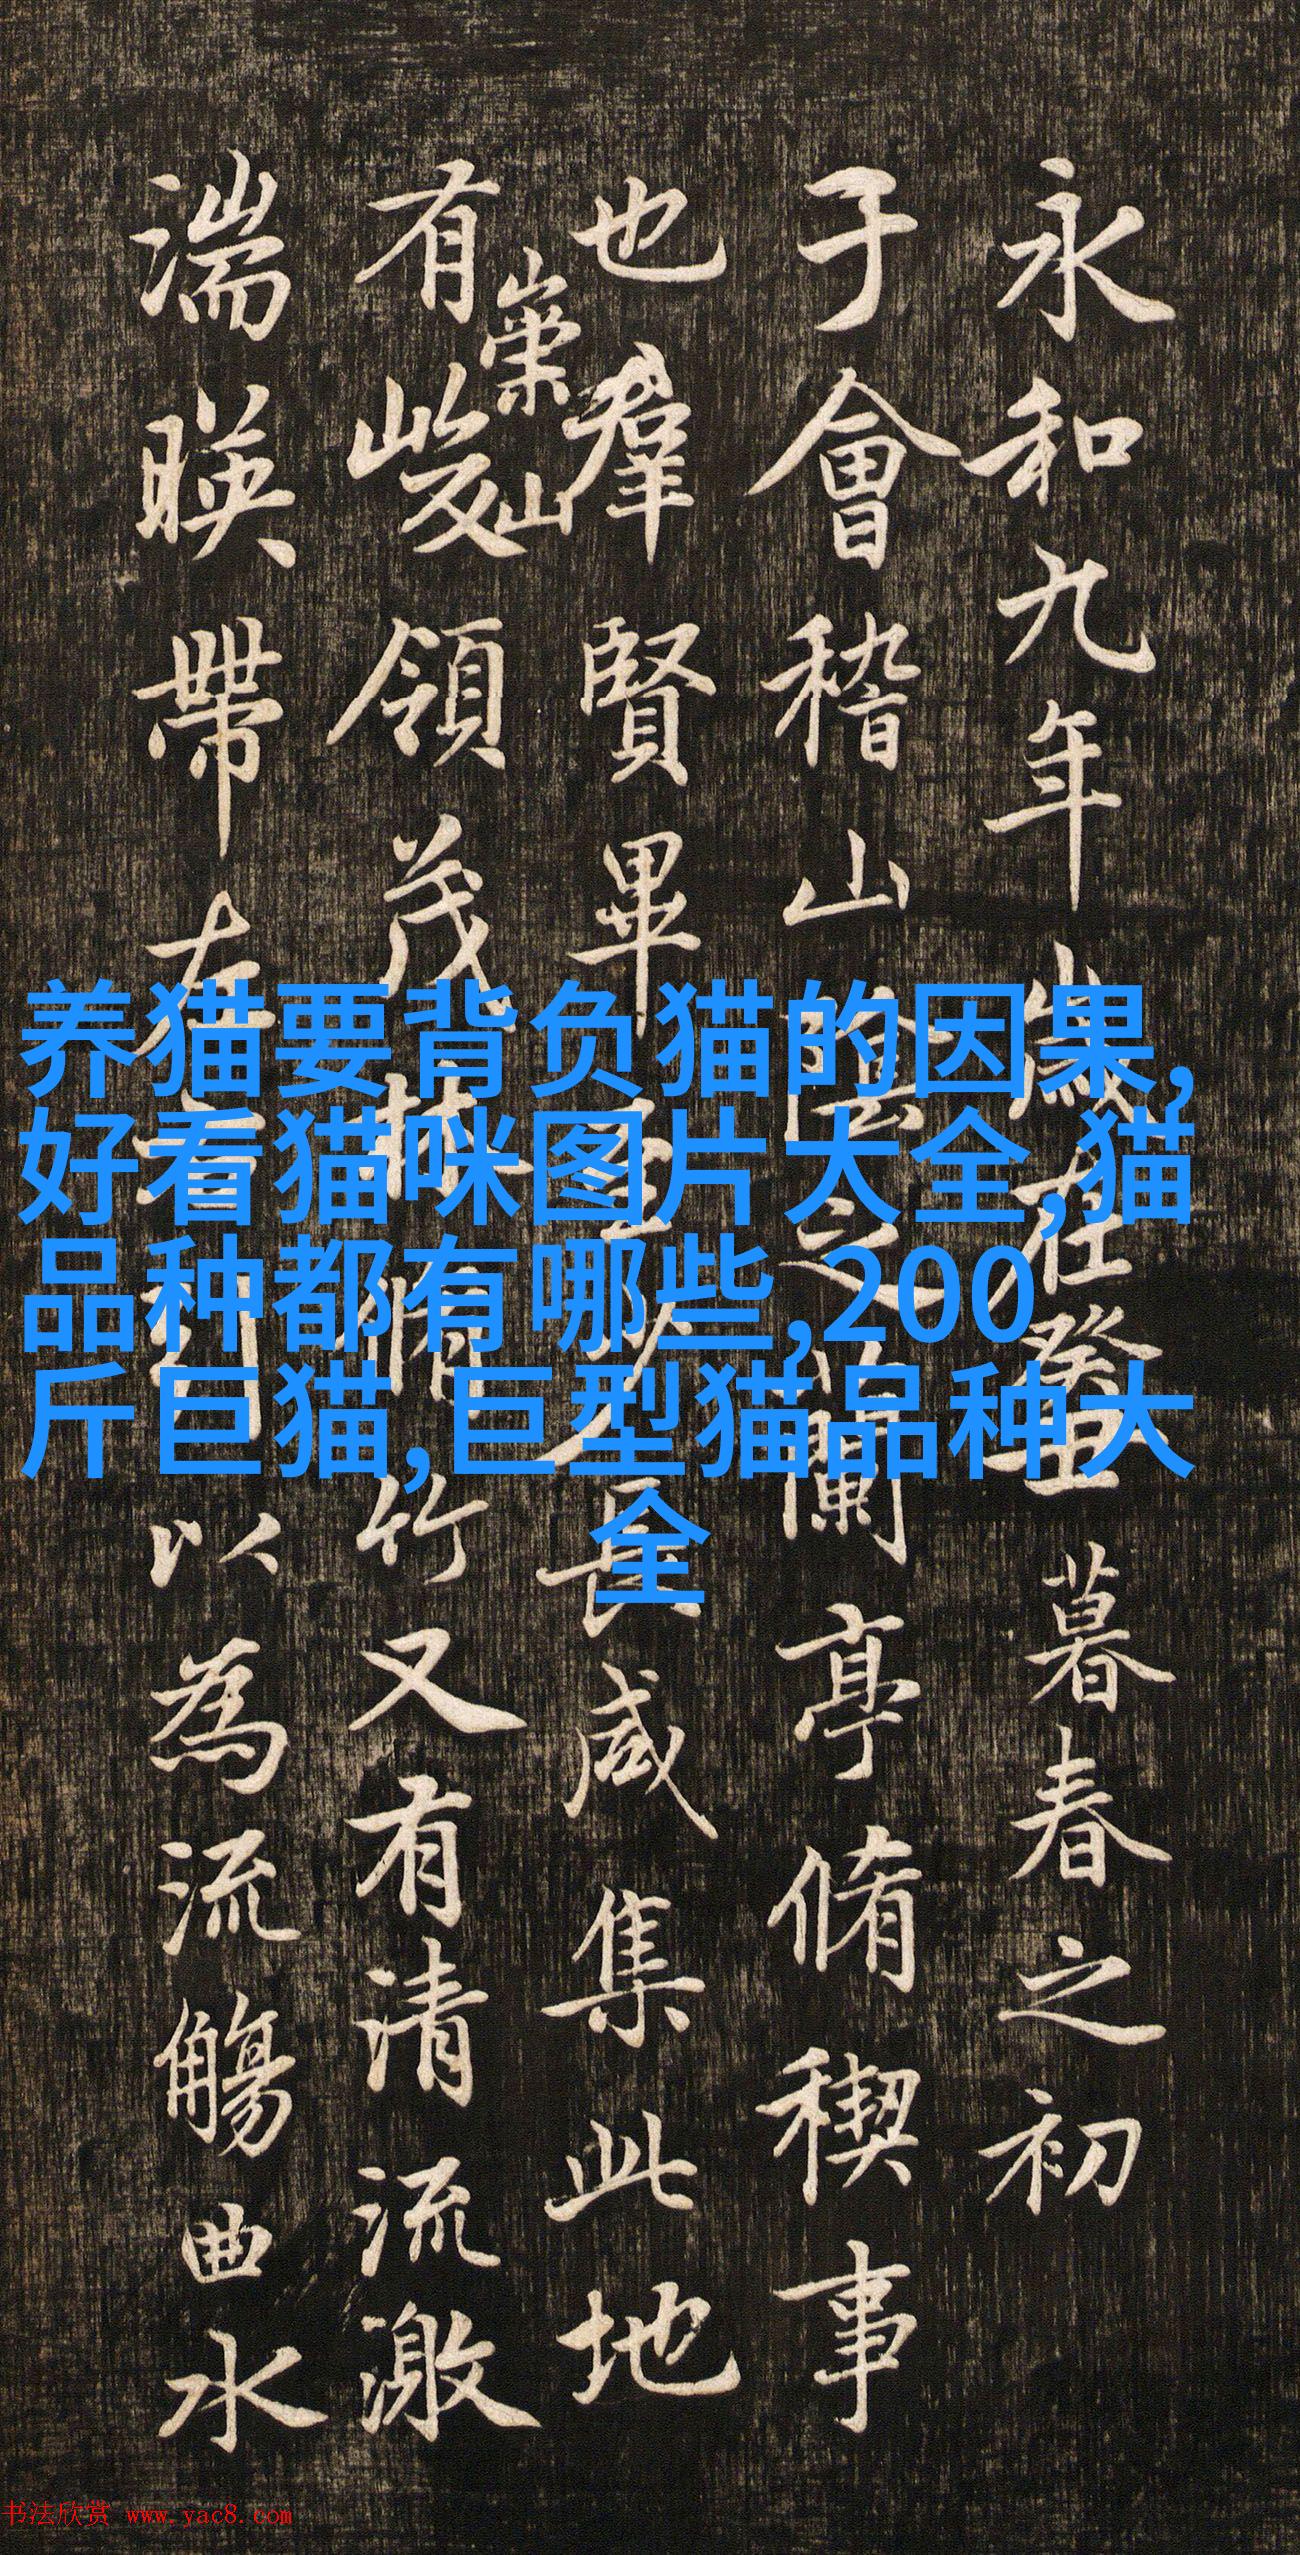 永和九年歲在癸丑暮春之初
于會稽山陰之蘭亭脩稧事
也羣賢畢至少長咸集此地
有崇山峻領茂林脩竹又有清流激
湍暎帶左右引以為流觴曲水
养猫要背负猫的因果,
好看猫咪图片大全,猫
品种都有哪些,200
斤巨猫,巨型猫品种大
全
书法欣赏 www.yac8.com